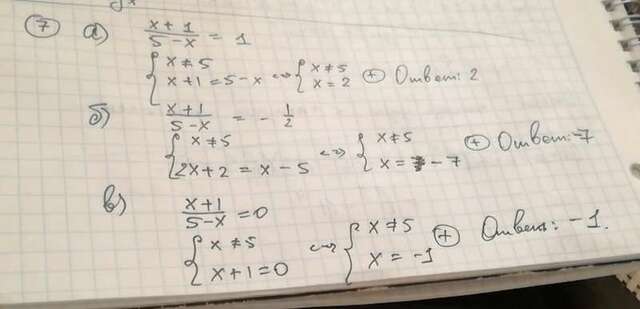 ⑦ а) x+1/5-x = 1
{ x≠5 x+1=5-x ⇔ { x≠5 x=2 ⊕ Ответ: 2
б) x+1/5-x = -1/2
{ x≠5 2x+2=x-5 ⇔ { x≠5 x=-7 ⊕ Ответ: -7
в) x+1/5-x =0
{ x≠5 x+1=0 ⇔ { x≠5 x=-1 ⊕ Ответ: -1.